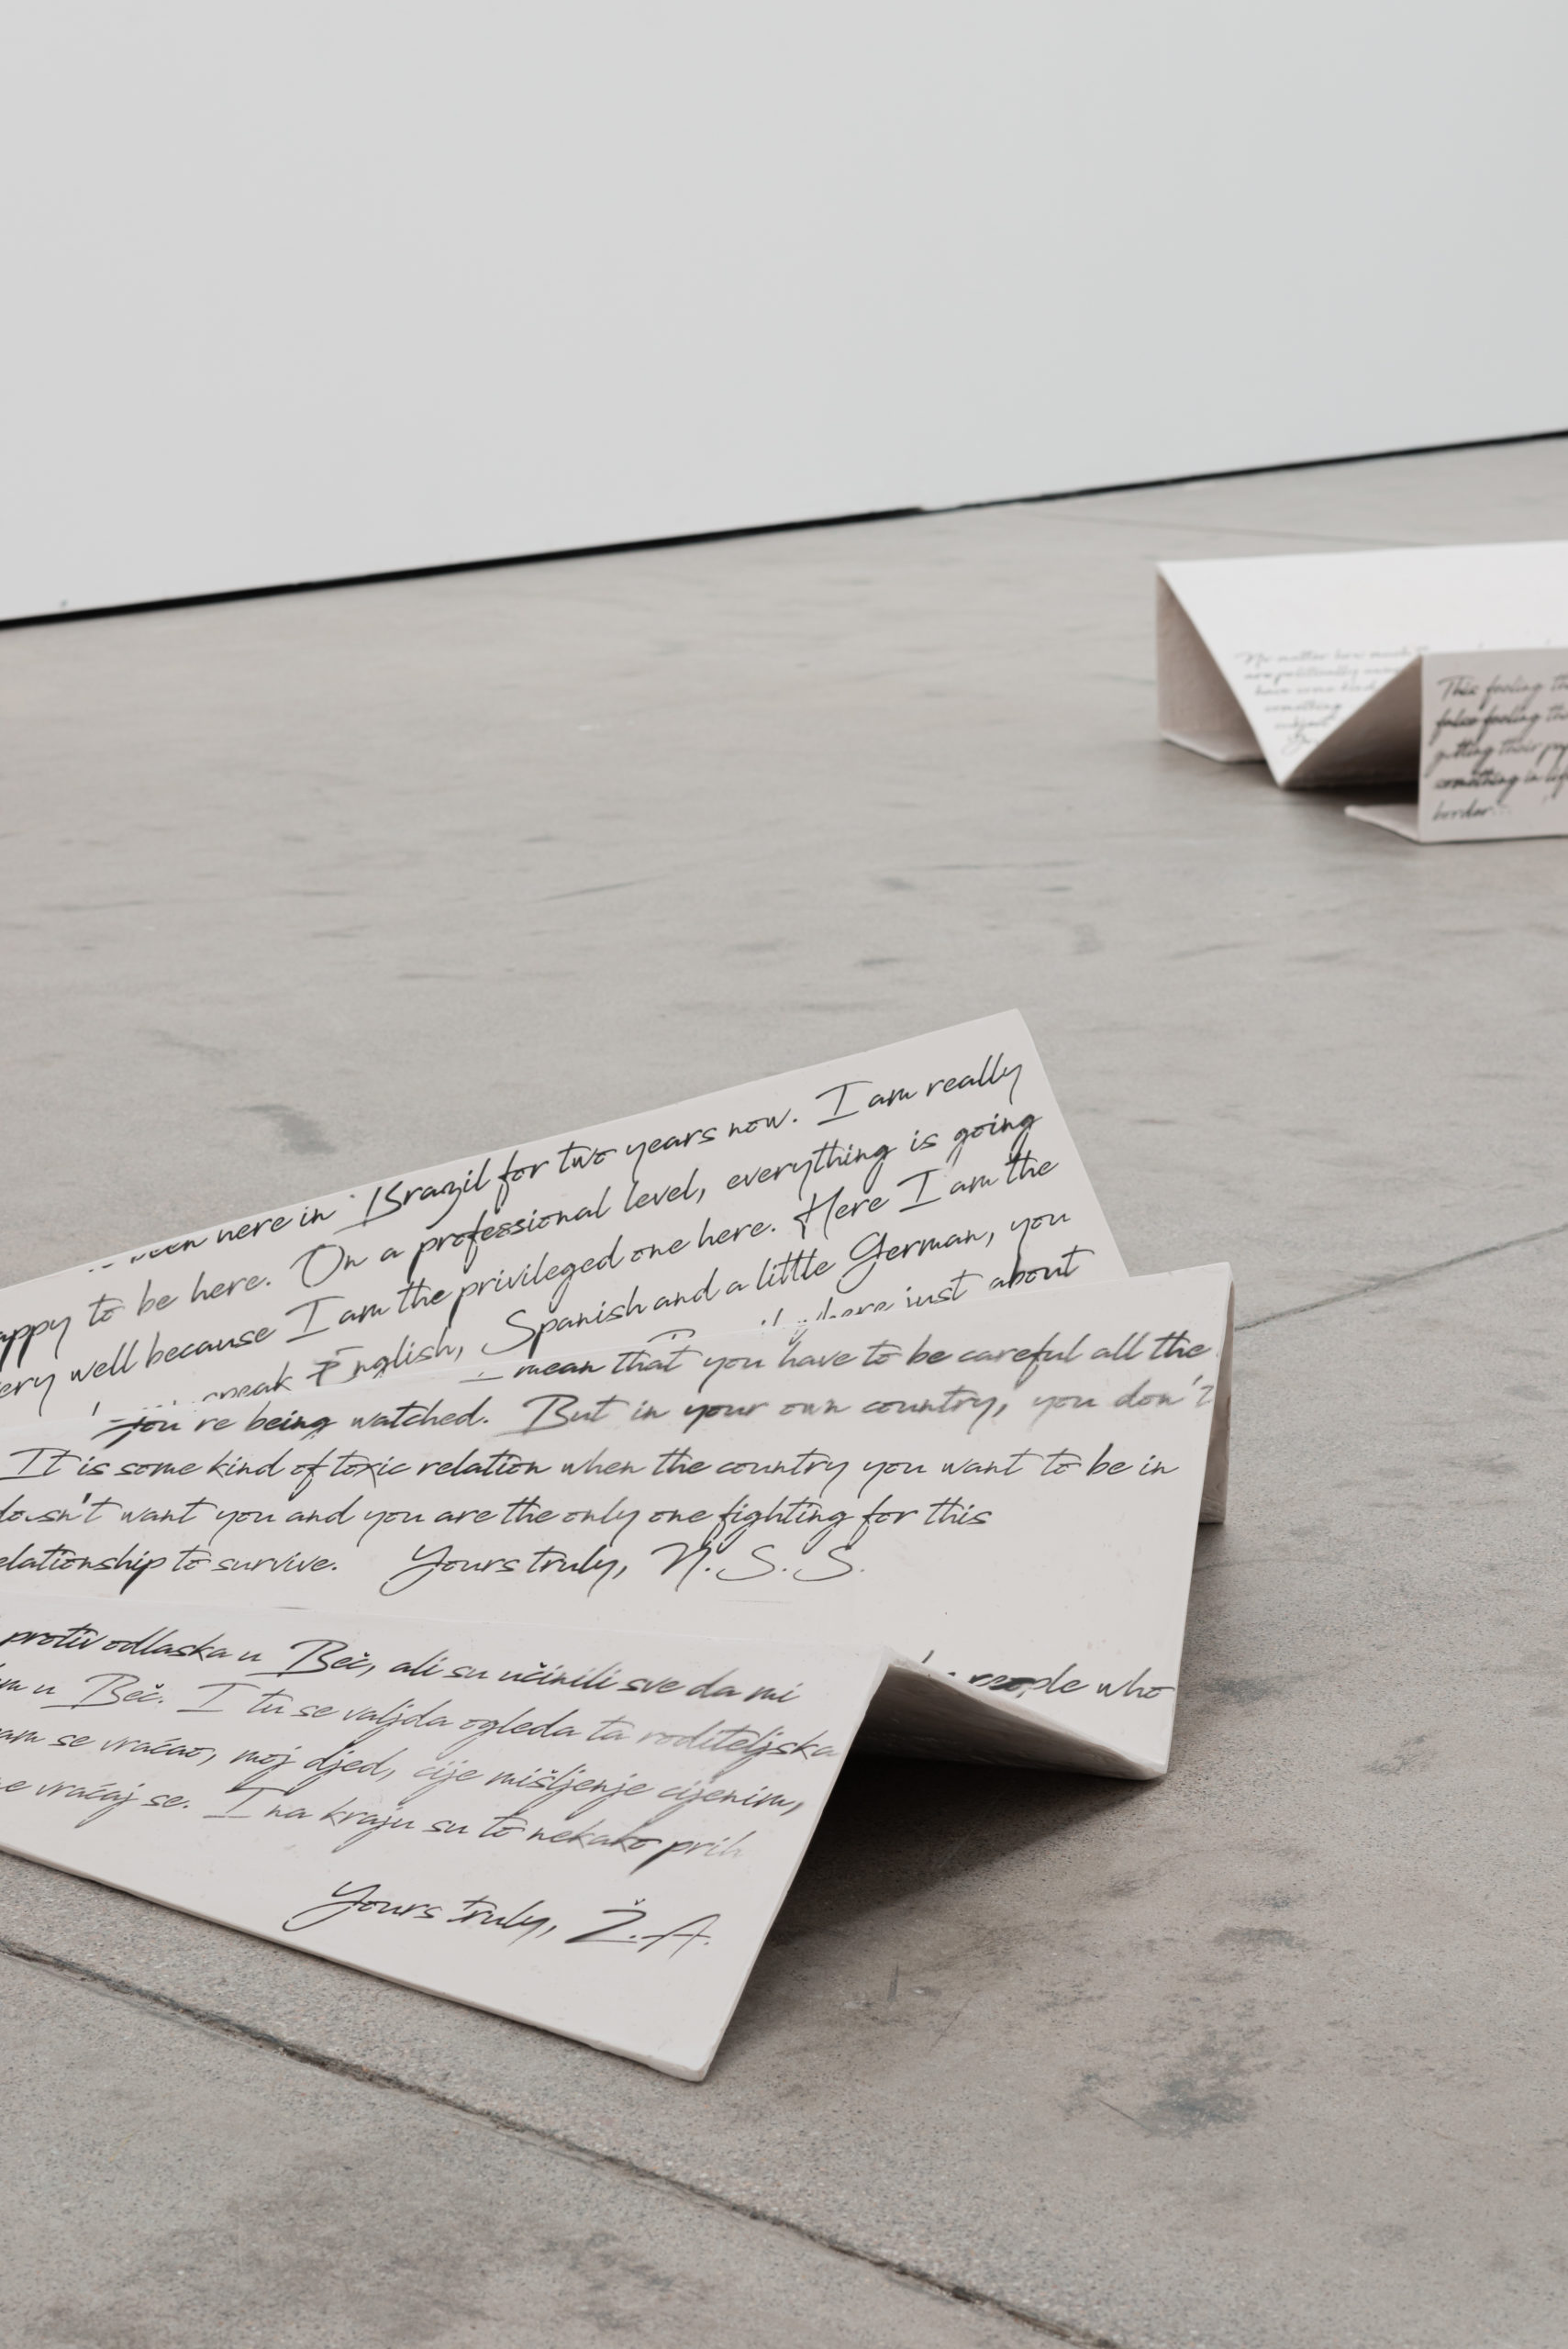 here in Brazil for two years now. I am really
to be here. On a professional level, everything is going
well because I am the privileged one here. Here I am the
English, Spanish and a little German, you
here just about
mean that you have to be careful all the
you're being watched. But in your own country, you don't
It is some kind of toxic relation when the country you want to be in
doesn't want you and you are the only one fighting for this
to survive. Yours truly, N.S.S.
people who
protiv odlaska u Beč, ali su učinili sve da mi
u Beč. I tu se valjda ogleda ta roditeljska
se vraćao, moj djed, cije mišljenje cijenim,
vraćaj se. I na kraju su to nekako prih
Yours truly, Ž.A.
No matter how much
are politically
have some kind
something
subject
This feeling
false feeling
getting their
something in
border